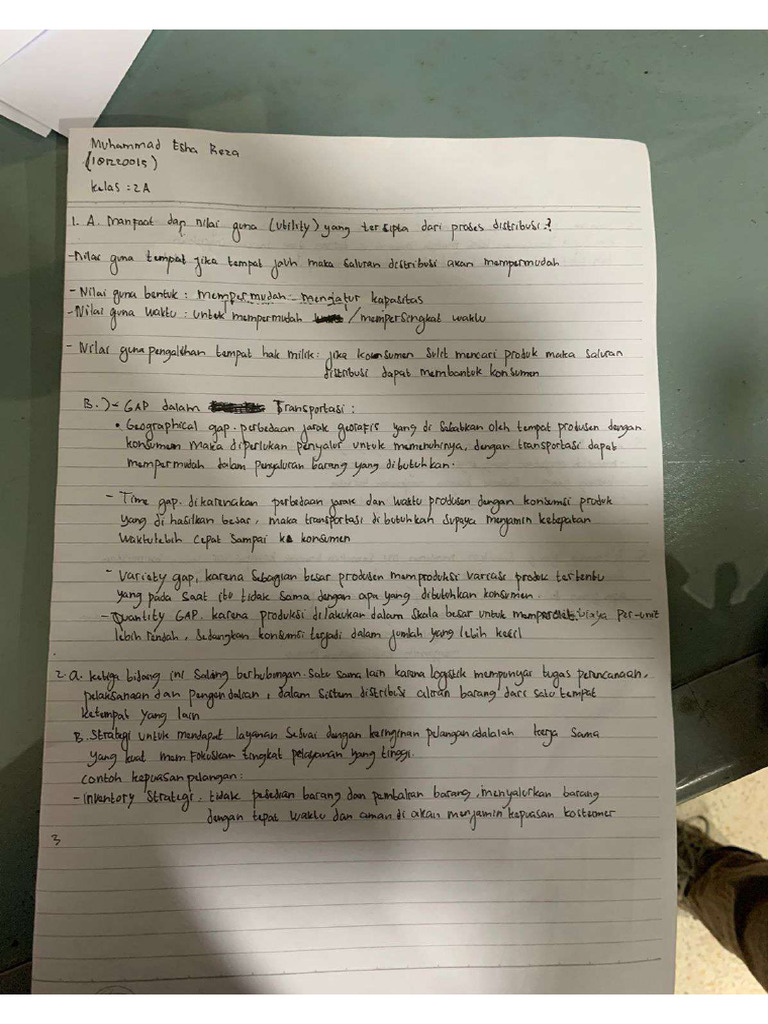 Muhammad Esha Reza
(18220015)
Kelas : 2A
1. A. Manfaat dan nilai guna (utility) yang tersipta dari proses distribusi?
-Nilai guna tempat jika tempat jauh maka saluran distribusi akan mempermudah
- Nilai guna bentuk : mempermudah mengatur kapasitas
- Nilai guna waktu : untuk mempermudah / mempersingkat waktu
- Nilai guna pengalihan tempat hak milik : jika konsumen sulit mencari produk maka saluran
distribusi dapat membantuk konsumen
B.) - GAP dalam Transportasi :
• Geographical gap. perbedaan jarak geografis yang di sebabkan oleh tempat produsen dengan
konsumen maka diperlukan penyalur untuk memenuhinya, dengan transportasi dapat
mempermudah dalam penyaluran barang yang dibutuhkan.
- Time gap. dikarenakan perbedaan jarak dan waktu produsen dengan konsumsi produk
yang di hasilkan besar, maka transportasi dibutuhkan supaya menjamin ketepatan
waktu lebih cepat sampai ke konsumen
- Variety gap, karena sebagian besar produsen memproduksi variasi produk tertentu
yang pada saat itu tidak sama dengan apa yang dibutuhkan konsumen.
- Quantity GAP. karena produksi dilakukan dalam skala besar untuk biaya per-unit
lebih rendah, sedangkan konsumsi terjadi dalam jumlah yang lebih kecil
2. a. ketiga bidang ini saling berhubungan satu sama lain karena logistik mempunyai tugas perencanaan,
pelaksanaan dan pengendalian, dalam sistem distribusi aliran barang dari satu tempat
ketempat yang lain
B. Strategi untuk mendapat layanan sesuai dengan keinginan pelangan adalah kerja sama
yang kuat memfokuskan tingkat pelayanan yang tinggi.
Contoh kepuasan pelangan :
- Inventory Strategi. tidak barang dan barang, menyalurkan barang
dengan tepat waktu dan aman di akan menjamin kepuasan kostumer
3